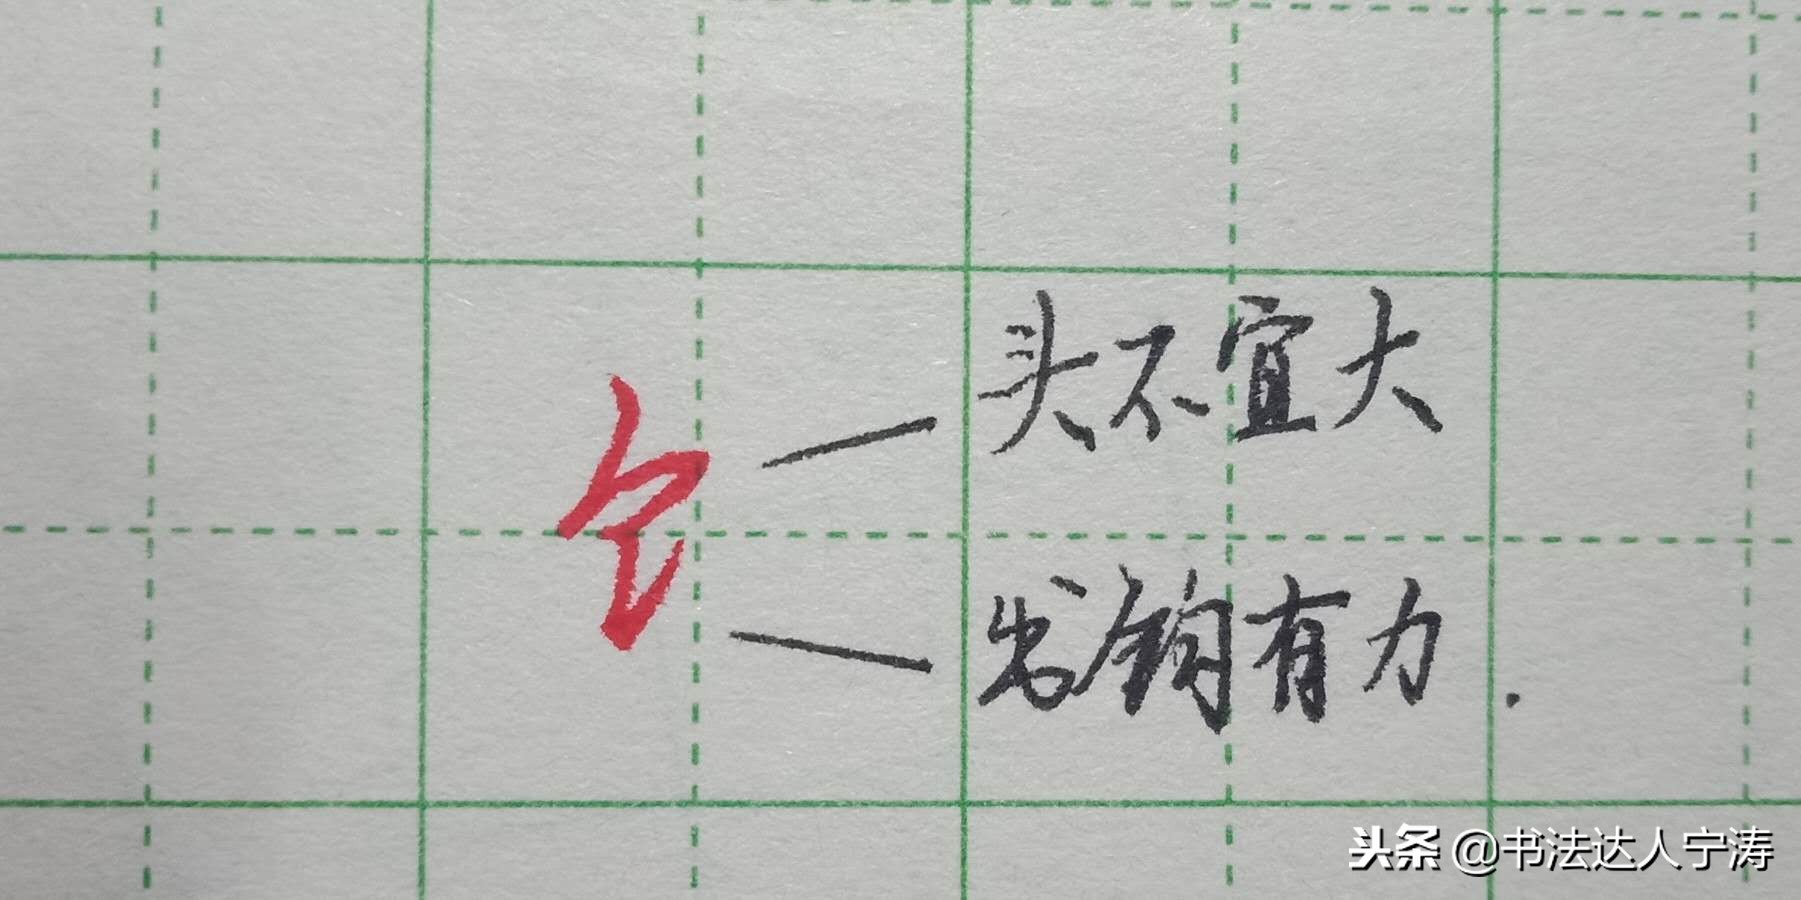 饣
头不宜大
出钩有力.
头条 @书法达人宁涛